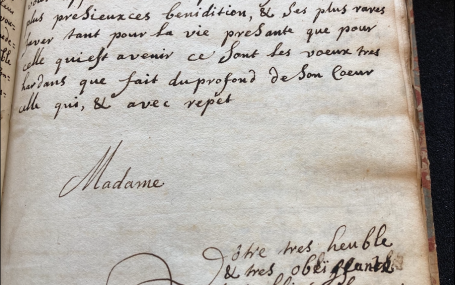 plus preshieuxces benidition, & ses plus rares
faver tant pour la vie presante que pour
celle quiest avenir ce sont les voeux tres
hardans que fait du profond de son Coeur
celle qui, & avec repet
Madame
otre tres heuble
& tres obligante